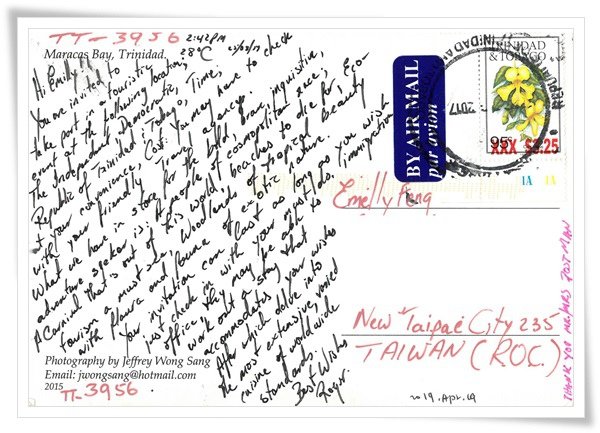 TT-3956
2:42PM
28°C
Maracas Bay, Trinidad.
Hi Emilly,
You are invited to
take part in a touristic
event at the following location,
The Independent Democratic,
Republic of Trinidad & Tobago, Time,
at your convenience, Cost: You may have to check
with your friendly Travel agency.
What we have in store for the bold, brave, inquisitive,
adventure seeker is; A people of cosmopolitan race,
A Carnival that's out of this world, beaches to die for, Eco-
tourism a must see, Woodlands of tropical beauty
with flora and fauna of exotic nature.
Your invitation can last as long as you wish
just check in with your immigration
office, they may be able to
work out a stay that
accommodates your wishes
After which delve into
the most extensive, varied
cuisine of worldwide
standards.
Best Wishes
Roger.
Photography by Jeffrey Wong Sang
Email: jwongsang@hotmail.com
2015
TT-3956
BY AIR MAIL
par avion
TRINIDAD
& TOBAGO
95c
XXX $3.25
1A 1A
2017
Emilly Feng
New Taipae City 235
TAIWAN (ROC.)
2019.Apr.19
THANK YOU MR/MRS POSTMAN